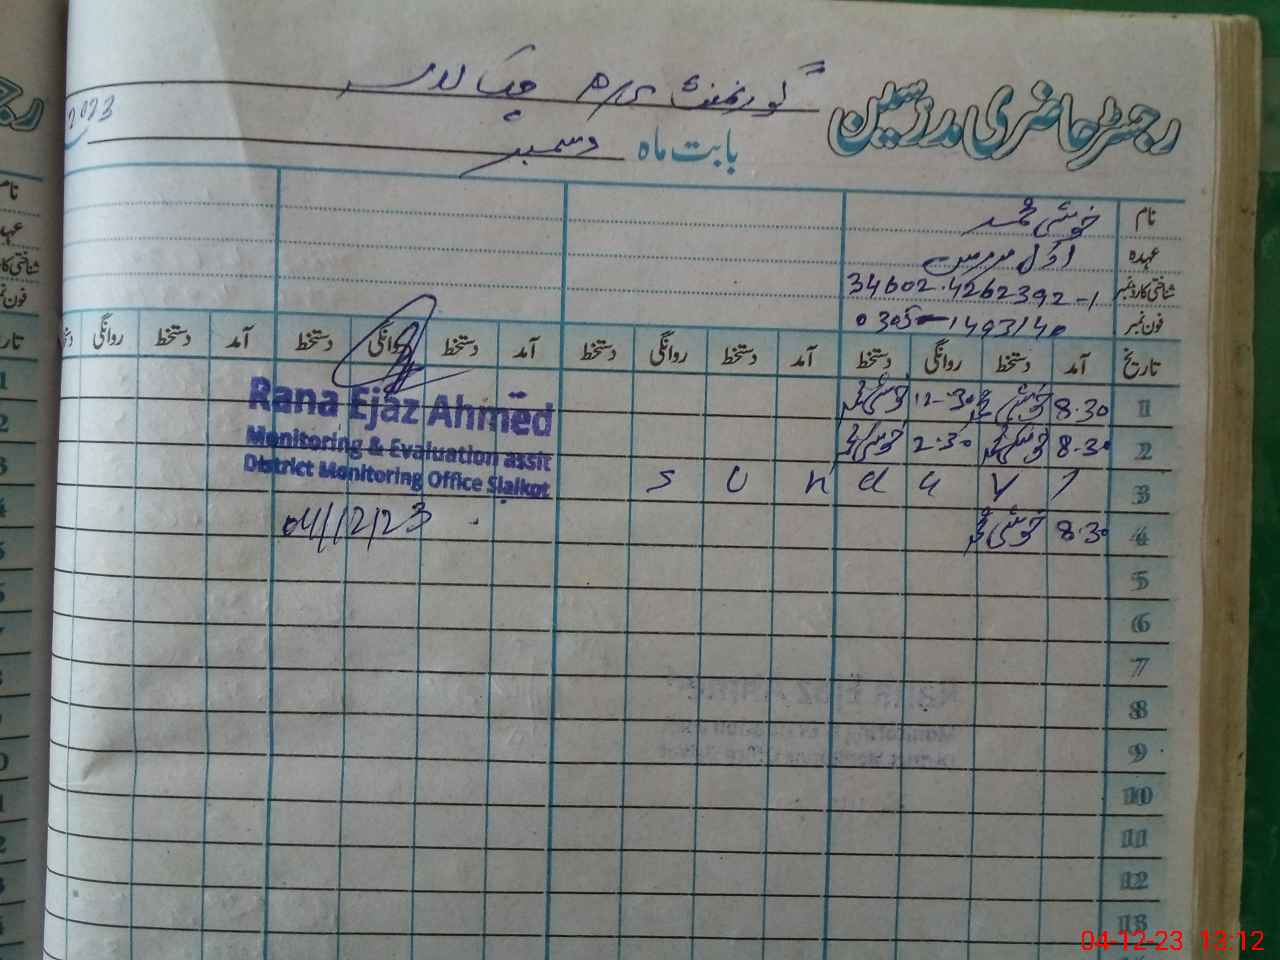 رجسٹر حاضری مدرسین گورنمنٹ
بابت ماہ دسمبر 2023
نام خوشی محمد
عہدہ اول مدرس
شناختی کارڈ نمبر 34602-4262392-1
فون نمبر 0305-1493140
تاریخ آمد دستخط روانگی دستخط آمد دستخط روانگی دستخط آمد دستخط روانگی دستخط آمد دستخط روانگی
1 8.30 12-30
Rana Ejaz Ahmed
2 8.30 2.30
Monitoring & Evaluation assit
District Monitoring Office Sialkot
3 S u n d a y
4 8.30
04/12/23
5
6
7
8
9
10
11
12
13
04-12-23 13:12